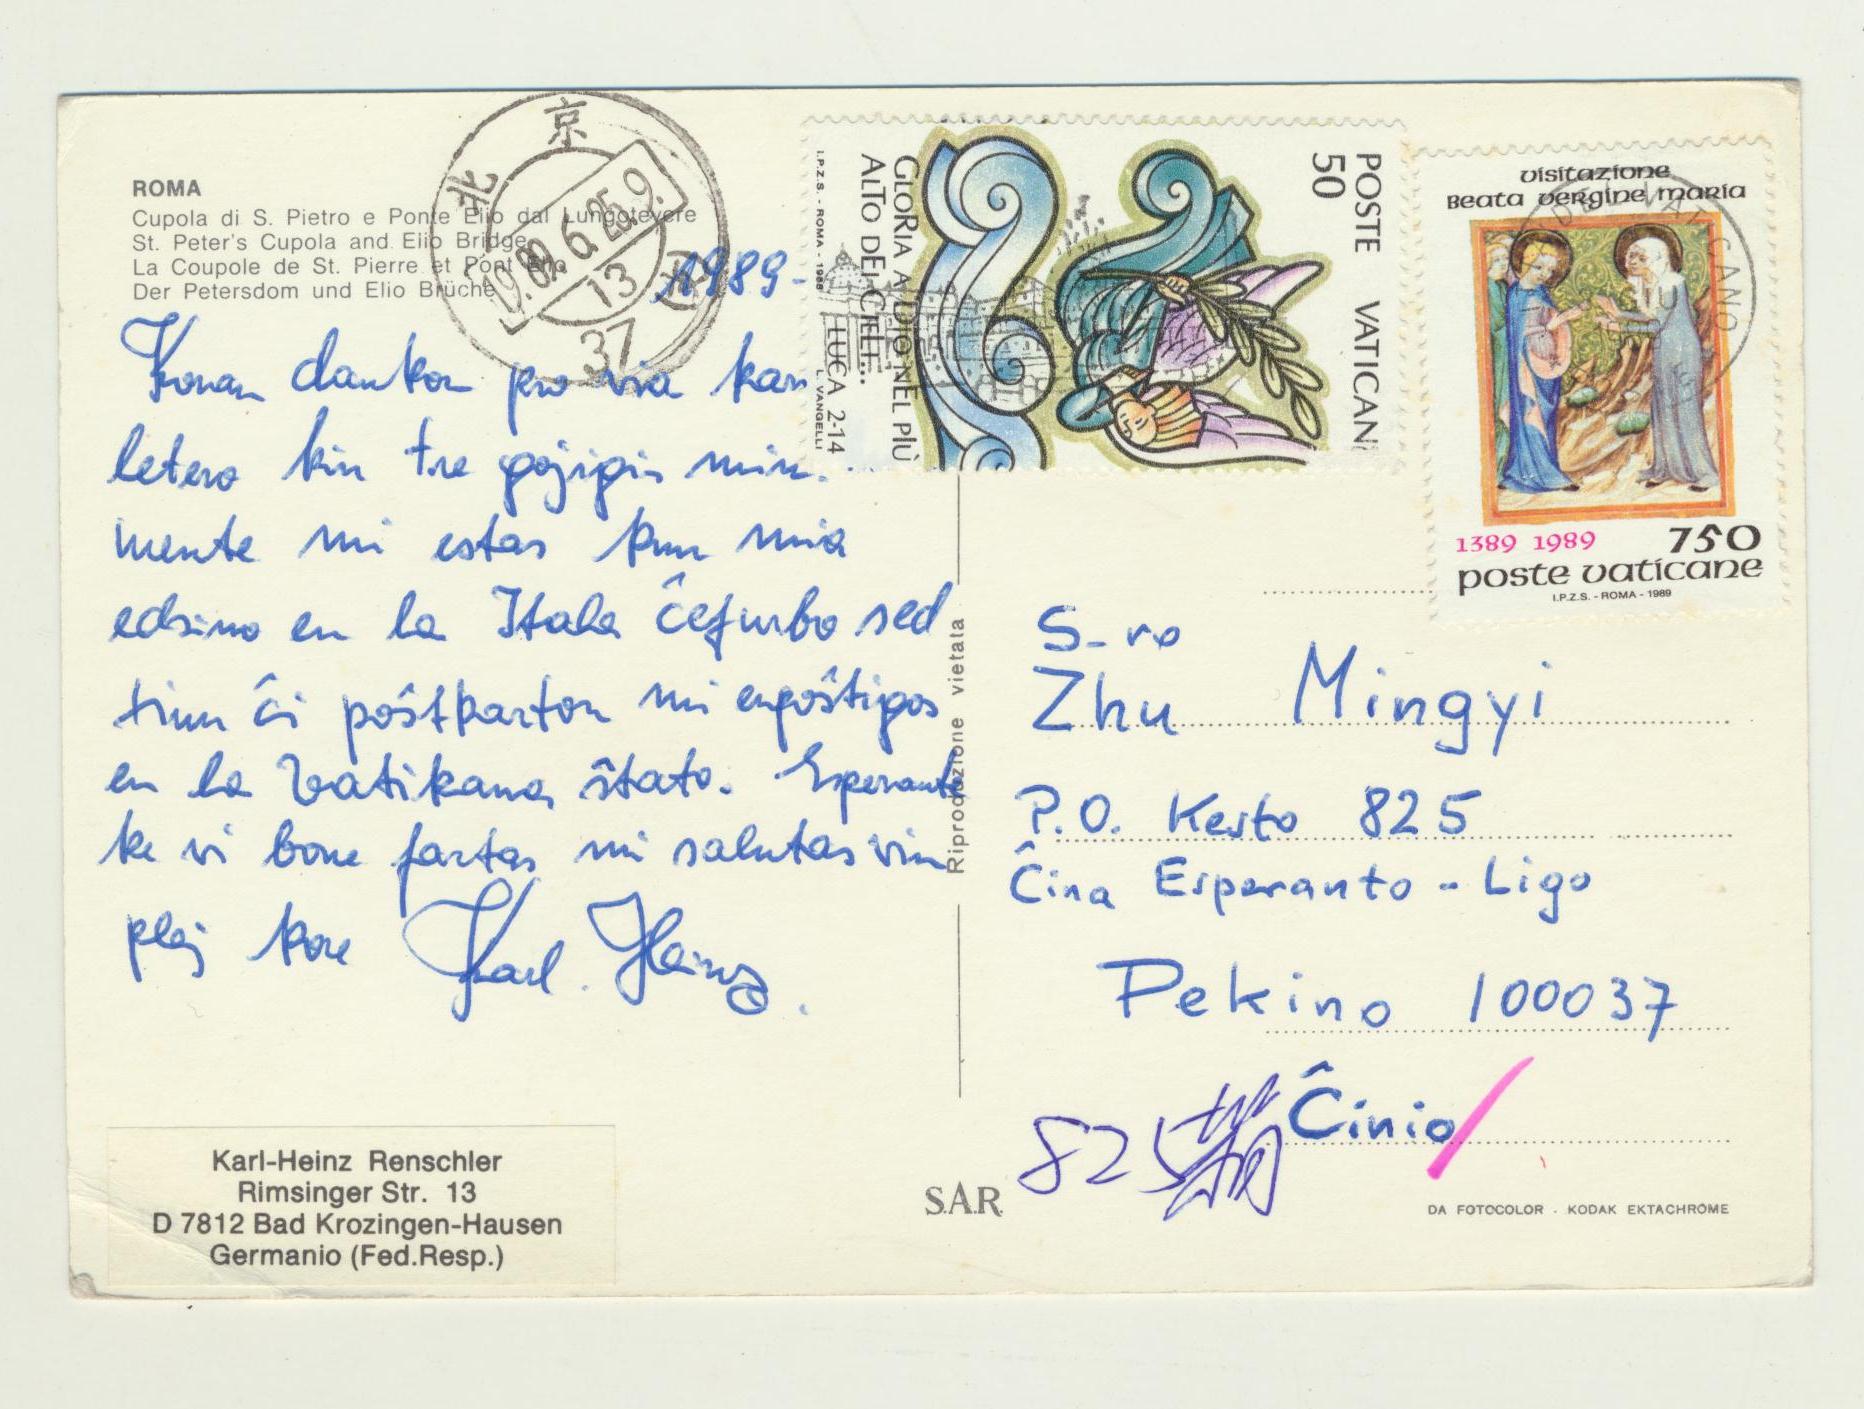 ROMA
Cupola di S. Pietro e Ponte Elio dal Lungotevere
St. Peter's Cupola and Elio Bridge
La Coupole de St. Pierre et Pont Elio
Der Petersdom und Elio Brüche
北京
1989.6.25.9.
13
37
1989-
Koran dankon pro via kara
letero kiu tre gojigis min.
mente mi estas kun mia
edzino en la Itala ĉefurbo sed
tiun ĉi poŝtkarton mi enpoŝtigos
en la Vatikana ŝtato. Esperante
ke vi bone fartas mi salutas vin
plej kore Karl. Heinz.
Karl-Heinz Renschler
Rimsinger Str. 13
D 7812 Bad Krozingen-Hausen
Germanio (Fed.Resp.)
POSTE VATICANE
50
GLORIA A DIO NEL PIÙ
ALTO DEI CIELI...
LUCA 2-14
I.P.Z.S. - ROMA - 1988
L. VANGELLI
visitazione
Beata vergine maria
1389 1989
750
poste vaticane
I.P.Z.S. - ROMA - 1989
Riproduzione vietata
S-ro
Zhu Mingyi
P.O. Kesto 825
Ĉina Esperanto - Ligo
Pekino 100037
Ĉinio
825
S.A.R.
DA FOTOCOLOR - KODAK EKTACHROME